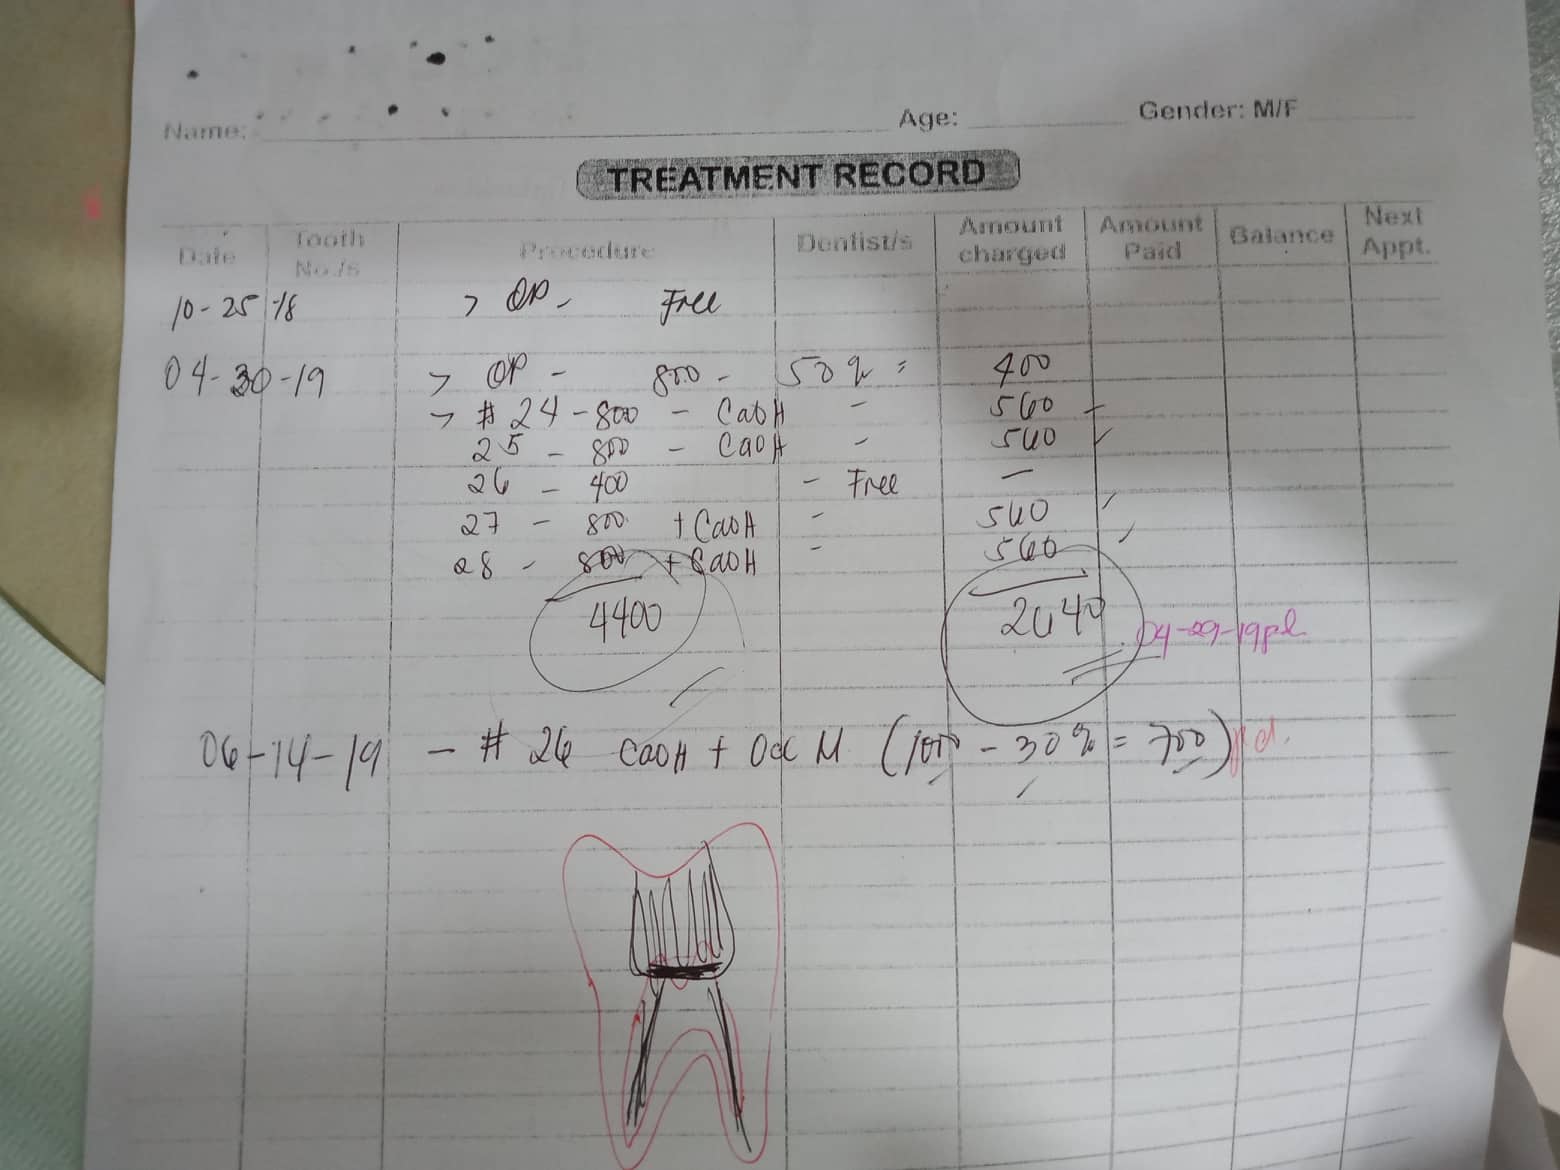 Name: Age: Gender: M/F
TREATMENT RECORD
Date Tooth No./s Procedure Dentist/s Amount charged Amount Paid Balance Next Appt.
10-25-18 > OP - Free
04-30-19 > OP - 800 - 50% = 400
> # 24 - 800 - CaOH - 560
25 - 800 - CaOH - 560
26 - 400 - Free -
27 - 800 + CaOH - 560
28 - 800 + CaOH - 560
4400 2640 04-29-19 pd
06-14-19 - # 26 CaOH + Occ M (1000 - 30% = 700) pd.